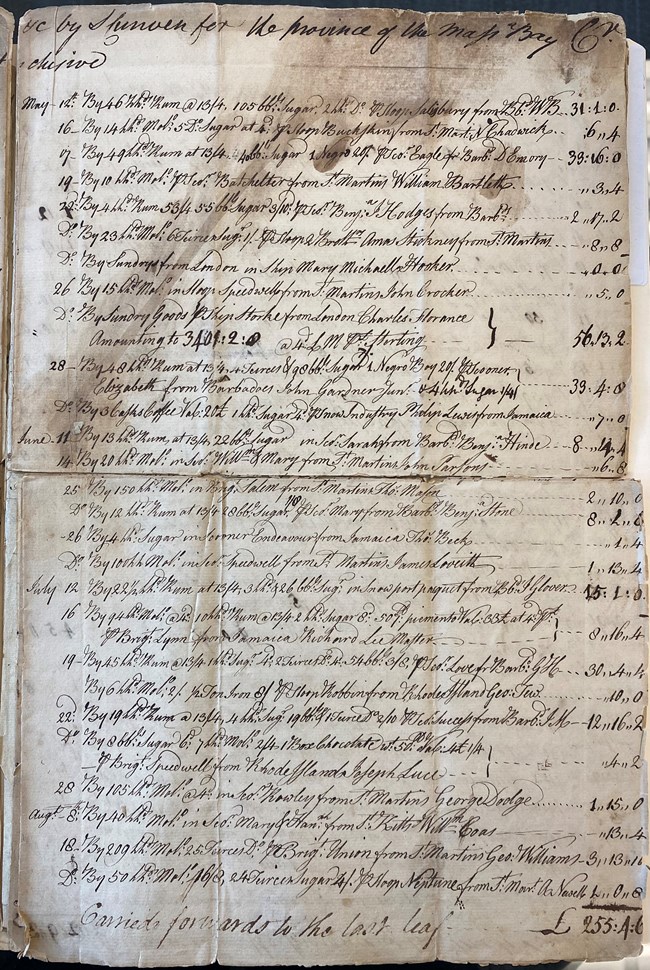 &c by Shurven for the Province of the Massa Bay Cr.
clusive
May - 12: By 46 hhds Rum @ 13/4, 105 bbs Sugar, 2 hh Do. P Sloop Salisbury from Bds W B 31:1:0
16 - By 14 hhds Mols. 5 Do. Sugar at 4d P Sloop Buckskin from St. Mart. N Chadwick ,,6,,4
17 - By 49 hhds Rum at 13/4 Sugar 1 Negro 20/. P Sco. Eagle fr Barbs D Emory 33:16:0
19 - By 10 hhds Mols. P Sco. Batchelter from St. Martins William Bartlett ,,3,,4
22 - By 4 hhds Rum 53/4 55 bbs Sugar 3/10: P Sco. Benja. Hodges from Barbs 2,,17,,2
Do. By 23 hhds Mols. 6 Turces Sugr. 1/. P Sloop 2 Brothrs Amos Stickney from St. Martins ,,8,,8
Do. By Sundrys from London in Ship Mary Michael Hooker ,,0,,0
26 By 15 hhds Mols. in Sloop Speedwell from St. Martins John Crocker ,,5,,0
Do. By Sundry Goods P Ship Storke from London Charles Storance
Amounting to 3401:2:0 @ 4d L M Pr £. Sterling 56.13.2
28 - By 48 hhds Rum at 13/4, 4 Turces & 98 bbs Sugar 1 Negro Boy 20/. P Scooner
Elizabeth from Barbadoes John Gardner Junr. & 4 hhds Sugar 1/4 33:4:8
Do. By 3 Casks Coffee Val: 20£ 1 hhd Sugar 4d P Snow Industry Philip Lewis from Jamaica ,,7,,0
June - 11 By 13 hhds Rum, at 13/4, 22 bbs Sugar in Sco. Sarah from Barbs Benja. Hinde 8,,4
14 By 20 hhds Mols. in Sco. Willm & Mary from St. Martins John Parsons ,,6,,8
25 By 150 hhds Mols. in Brig. Salem from St. Martins Thos. Mason 2,,10,,0
Do. By 12 hhds Rum at 13/4 28 bbs Sugar 1/8 P Sco. Mary from Barbs Benja. Stine 8,,2
- 26 By 4 hhds Sugar in Scooner Endeavour from Jamaica Thos. Beck ,,1,,4
Do. By 100 hhds Mols. in Sco. Speedwell from St. Martins James Lovitt 1,,13,,4
July 12 By 22½ hhds Rum at 13/4, 3 hhds & 26 bbs Sugr. in Snow port paquet from Bds J Glover 15:1:0
16 By 94 hhds Mols. @ 4d. 10 hhds Rum @ 13/4 2 hhds Sugar 8: 50 pimento Val: 33£ at 4d Pr £
P Brig. Lynn from Jamaica Richard Lee Master 8,,16,,4
19 - By 45 hhds Rum @ 13/4 1 hhd Sugr. 4: 2 Turces Do. 4: 54 bbs 3/8 P Sco. Love fr Barbs G H 30,,4
By 6 hhds Mols. 2/. ½ Ton Iron 8/ P Sloop Robbin from Rhode Island Geo. Tew ,,10,,0
22: By 19 hhds Rum @ 13/4, 4 hhds Sugr. 19 bbs & 1 Turce Do. 2/10 P Sco. Success from Barbs J M - 12,,16,,2
Do. By 8 bbs Sugar 6d; 7 hhds Mols. 2/4 1 Box Chocolate Val: 4£ 1/4
P Brig. Speedwell from Rhode Island Joseph Luce ,,4,,2
28 By 105 hhds Mols. @ 4d. in Sco. Rowley from St. Martins George Dodge 1,,15,,0
Augt - 8: By 40 hhds Mols. in Sco. Mary & Hanah from St. Kitts Willm Coas ,,13,,4
18 - By 209 hhds Mols. 25 Turces Do. P Brig. Union from St. Martins Geo: Williams 3,,13,,10
Do. By 50 hhds Mols. 16/8, 24 Turces Sugar 4/. P Sloop Neptune from St. Mart. A Newell 1,,0,,8
Carried forwards to the last leaf £ 255:4:6